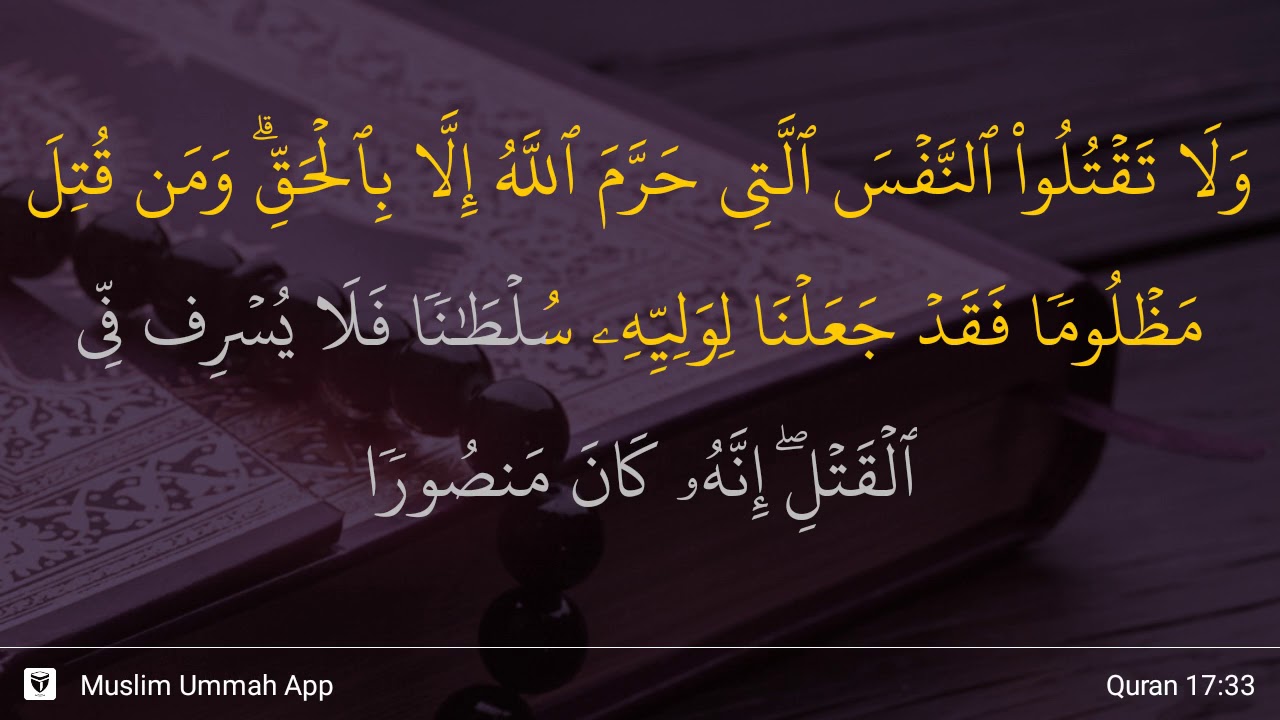 وَلَا تَقۡتُلُواْ ٱلنَّفۡسَ ٱلَّتِي حَرَّمَ ٱللَّهُ إِلَّا بِٱلۡحَقِّۗ وَمَن قُتِلَ
مَظۡلُومٗا فَقَدۡ جَعَلۡنَا لِوَلِيِّهِۦ سُلۡطَٰنٗا فَلَا يُسۡرِف فِّي
ٱلۡقَتۡلِۖ إِنَّهُۥ كَانَ مَنصُورٗا
Muslim Ummah App
Quran 17:33